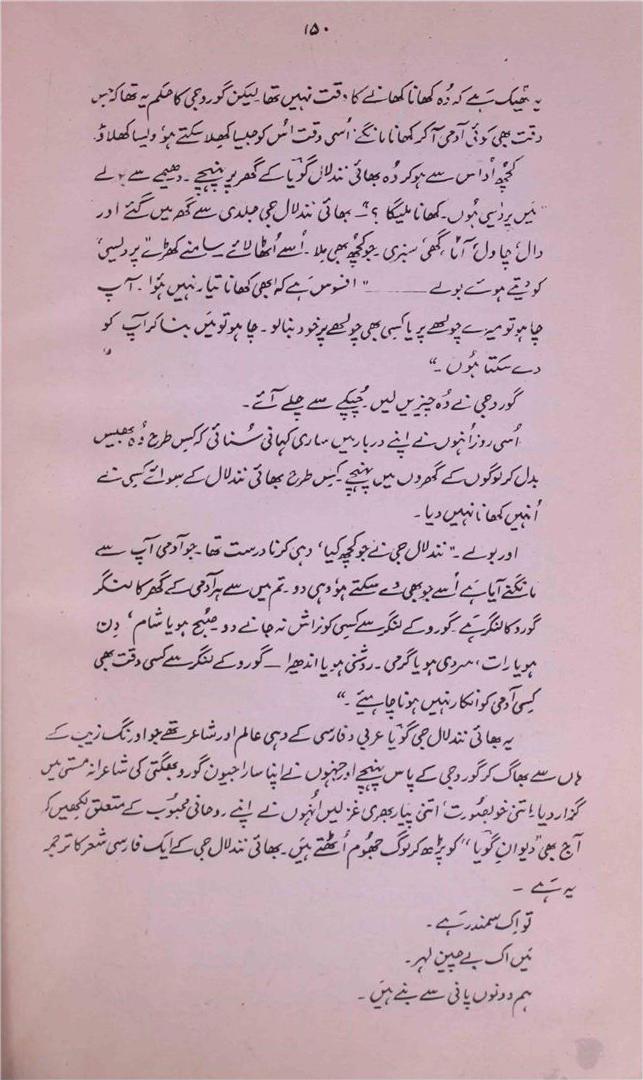 ۱۵۰
یہ ٹھیک ہے کہ وُہ کھانا کھانے کا وقت نہیں تھا۔ لیکن گورو جی کا حکم یہ تھا کہ جس
وقت بھی کوئی آدمی آ کر کھانا مانگے اُسی وقت اُس کو جیسا کھلا سکتے ہو، ویسا کھلاؤ۔
کچھ اُداس سے ہو کر وُہ بھائی نندلال گویا کے گھر پر پہنچے۔ دھیمے سے بولے
"میں پردیسی ہُوں۔ کھانا ملیگا؟" بھائی نندلال جی جلدی سے گھر میں گئے اور
دال، چاول، آٹا، گھی، سبزی۔ جو کچھ بھی ملا۔ اُسے اُٹھا لائے۔ سامنے کھڑے "پردیسی"
کو دیتے ہوئے بولے ــــــ "افسوس ہے کہ ابھی کھانا تیار نہیں ہُوا۔ آپ
چاہو تو میرے چولھے پر یا کسی بھی چولھے پر خود بنا لو۔ چاہو تو میں بنا کر آپ کو
دے سکتا ہُوں۔"
گورو جی نے وُہ چیزیں لیں۔ چُپکے سے چلے آئے۔
اُسی روز اُنہوں نے اپنے دربار میں ساری کہانی سُنائی کہ کس طرح وُہ بھیس
بدل کر لوگوں کے گھروں میں پہنچے۔ کس طرح بھائی نندلال کے سوائے کسی نے
اُنہیں کھانا نہیں دیا۔
اور بولے۔ "نندلال جی نے جو کچھ کیا، وہی کرنا درست تھا۔ جو آدمی آپ سے
مانگنے آیا ہے اُسے جو بھی دے سکتے ہو وہی دو۔ تم میں سے ہر آدمی کے گھر کا لنگر
گورو کا لنگر ہے۔ گورو کے لنگر سے کسی کو نراش نہ جانے دو۔ صبح ہو یا شام، دِن
ہو یا رات، سردی ہو یا گرمی۔ روشنی ہو یا اندھیرا ــ گورو کے لنگر سے کسی وقت بھی
کسی آدمی کو انکار نہیں ہونا چاہیئے۔"
یہ بھائی نندلال جی گویا عربی و فارسی کے وہی عالم اور شاعر تھے جو اورنگ زیب کے
ہاں سے بھاگ کر گورو جی کے پاس پہنچے اور جنہوں نے اپنا سارا جیون گورو بھگتی کی شاعرانہ مستی میں
گزار دیا۔ اِتنی خوبصورت، اتنی پیار بھری غزلیں اُنہوں نے اپنے روحانی محبوب کے متعلق لکھیں کہ
آج بھی "دیوانِ گویا" کو پڑھ کر لوگ جھوم اُٹھتے ہیں۔ بھائی نندلال جی کے ایک فارسی شعر کا ترجمہ
یہ ہے ۔
تو اِک سمندر ہے۔
میں اک بے چین لہر۔
ہم دونوں پانی سے بنے ہیں۔